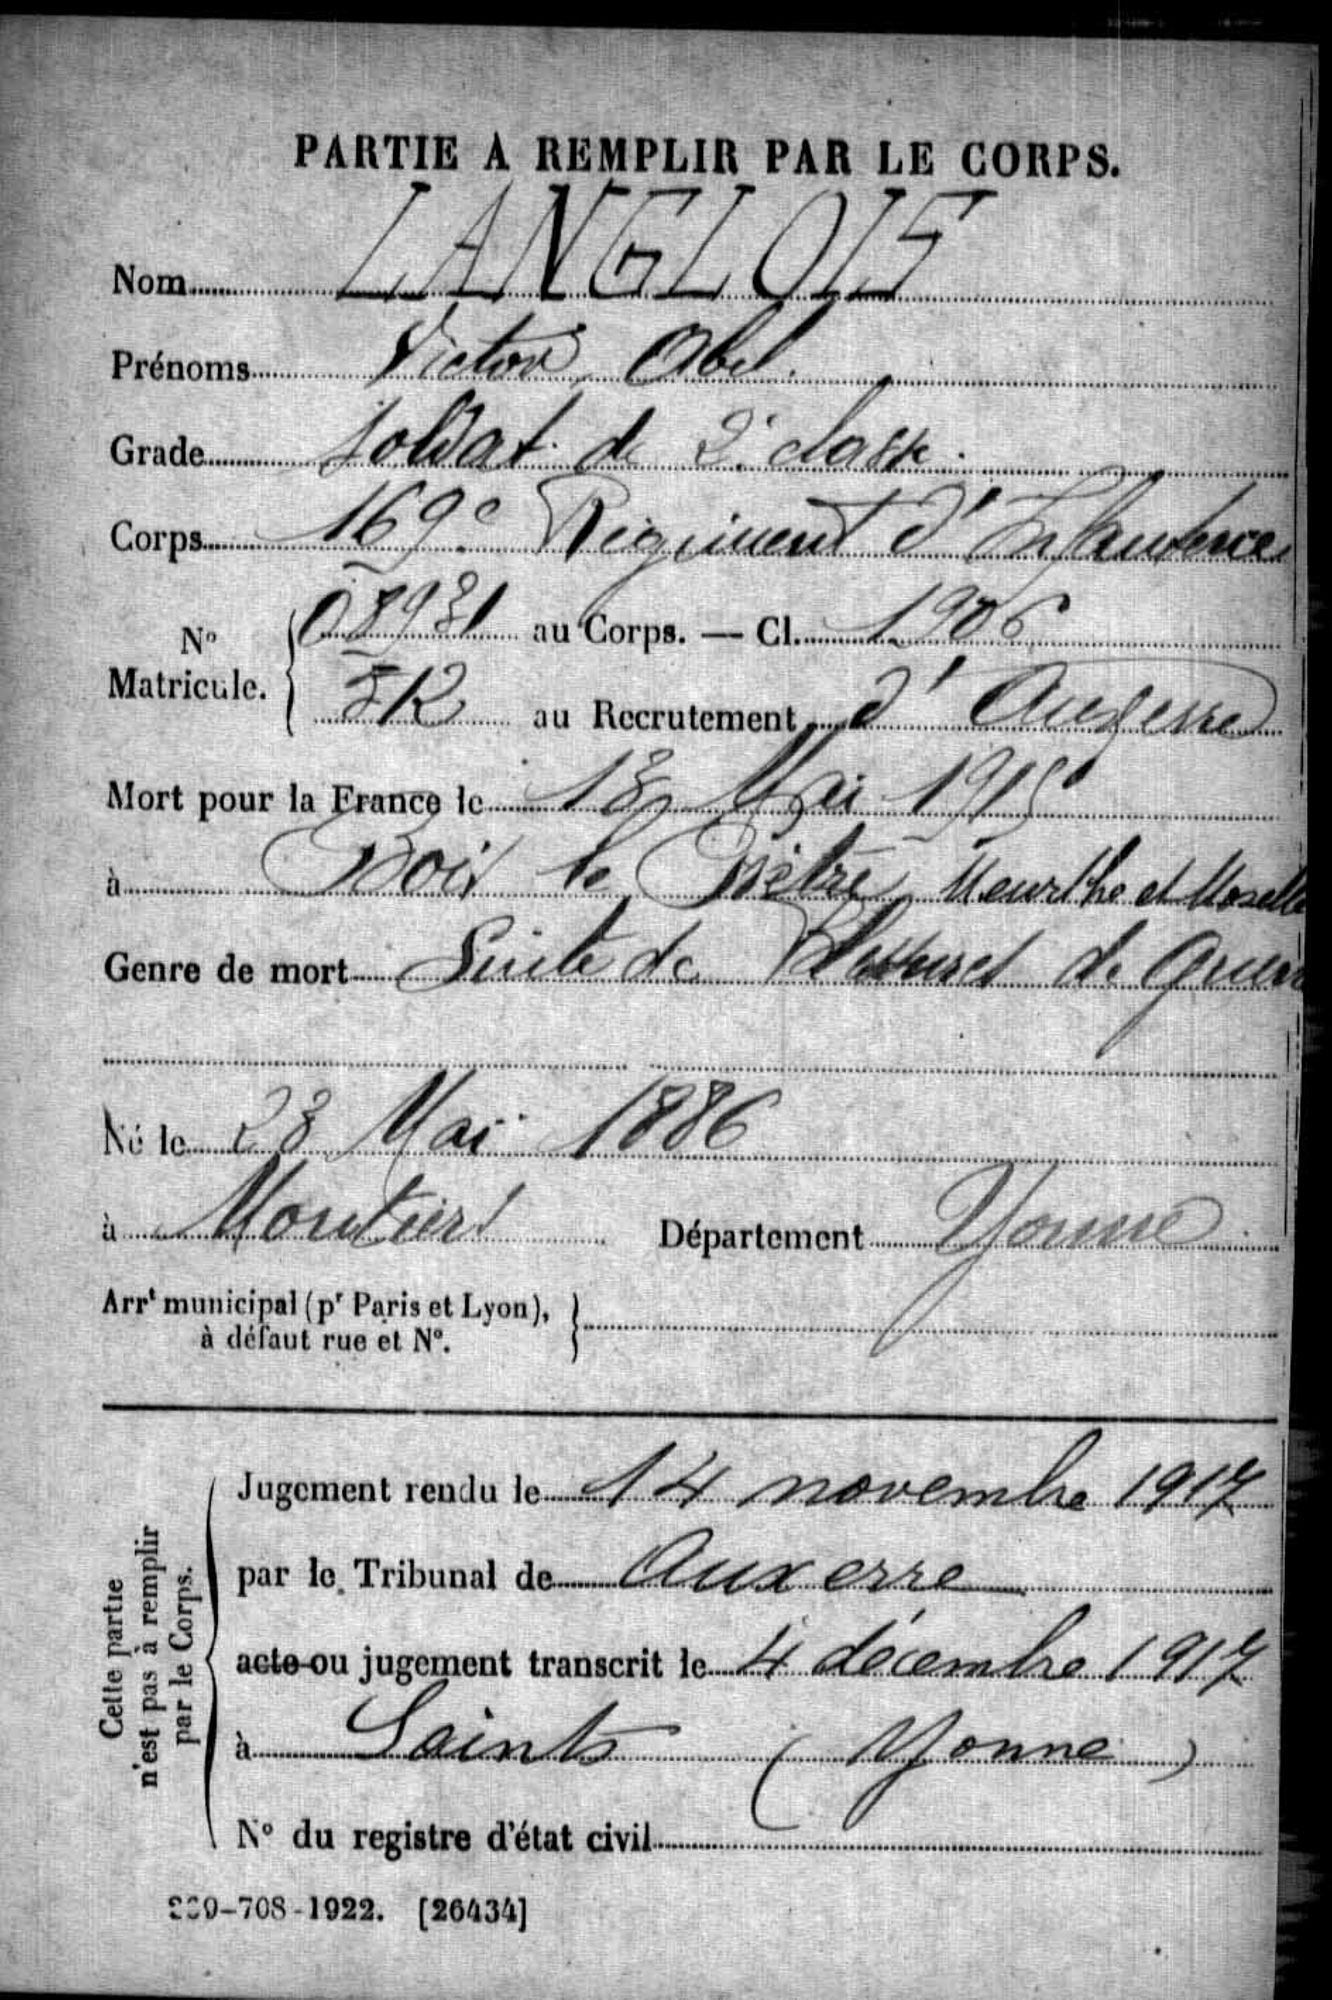 PARTIE A REMPLIR PAR LE CORPS.
Nom LANGLOIS
Prénoms Victor Abel.
Grade Soldat de 2e classe.
Corps 169e Régiment d'Infanterie
No Matricule. { 08931 au Corps. — Cl. 1906
512 au Recrutement d'Auxerre
Mort pour la France le 13 Mai 1915
à Bois le Prêtre Meurthe et Moselle
Genre de mort Suite de Blessures de Guerre
Né le 23 Mai 1886
à Moutiers Département Yonne
Arrt municipal (pr Paris et Lyon),
à défaut rue et No.
Cette partie
n'est pas à remplir
par le Corps.
Jugement rendu le 14 novembre 1917
par le Tribunal de Auxerre
acte ou jugement transcrit le 4 décembre 1917
à Saints (Yonne)
No du registre d'état civil
-708-1922. [26434]